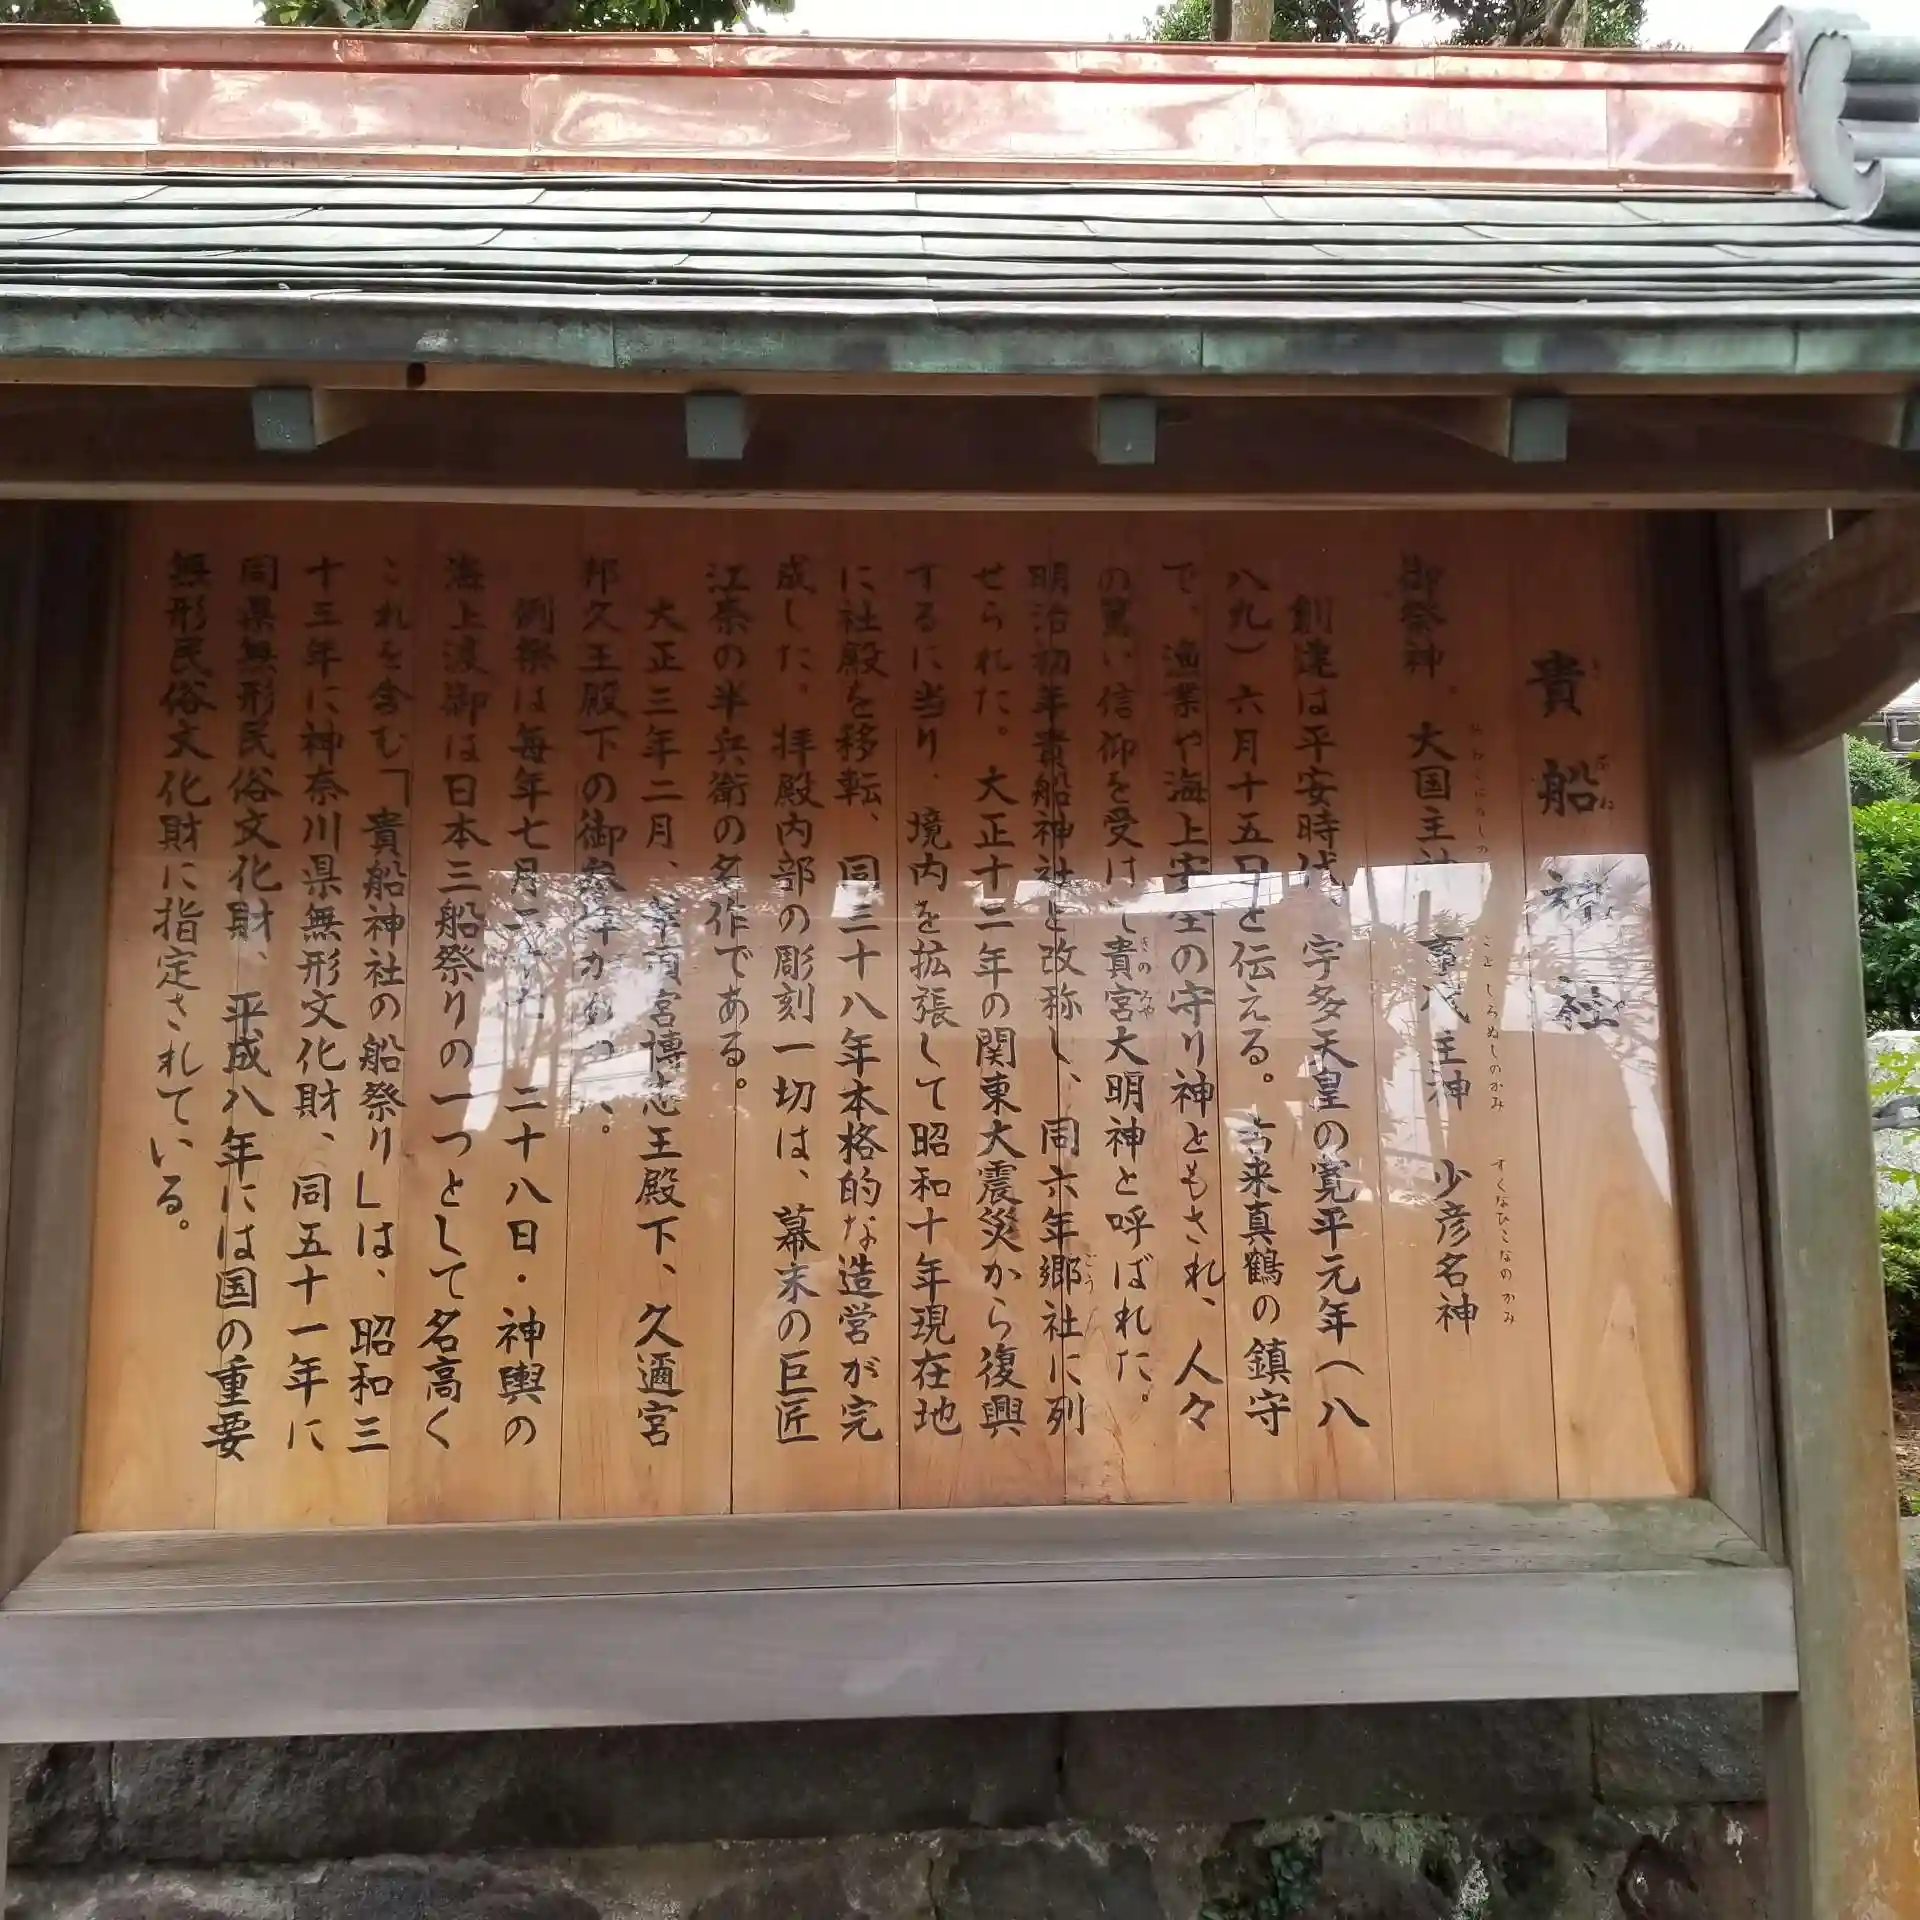 貴船神社
きぶねじんじゃ
御祭神。大国主神 事代主神 少彦名神
おおくにぬしの ことしろぬしのかみ すくなひこなのかみ
創建は平安時代、宇多天皇の寛平元年(八
八九)六月十五日と伝える。古来真鶴の鎮守
で、漁業や海上安全の守り神ともされ、人々
の篤い信仰を受けて貴宮大明神と呼ばれた。
きのみや
明治初年貴船神社と改称し、同六年郷社に列
ごう
せられた。大正十二年の関東大震災から復興
するに当り、境内を拡張して昭和十年現在地
に社殿を移転、同三十八年本格的な造営が完
成した。拝殿内部の彫刻一切は、幕末の巨匠
江奈の半兵衛の名作である。
大正三年二月、華頂宮博忠王殿下、久邇宮
邦久王殿下の御参拝があった。
例祭は毎年七月二十七 二十八日・神輿の
海上渡御は日本三船祭りの一つとして名高く
これを含む「貴船神社の船祭り」は、昭和三
十三年に神奈川県無形文化財、同五十一年に
同県無形民俗文化財、平成八年には国の重要
無形民俗文化財に指定されている。